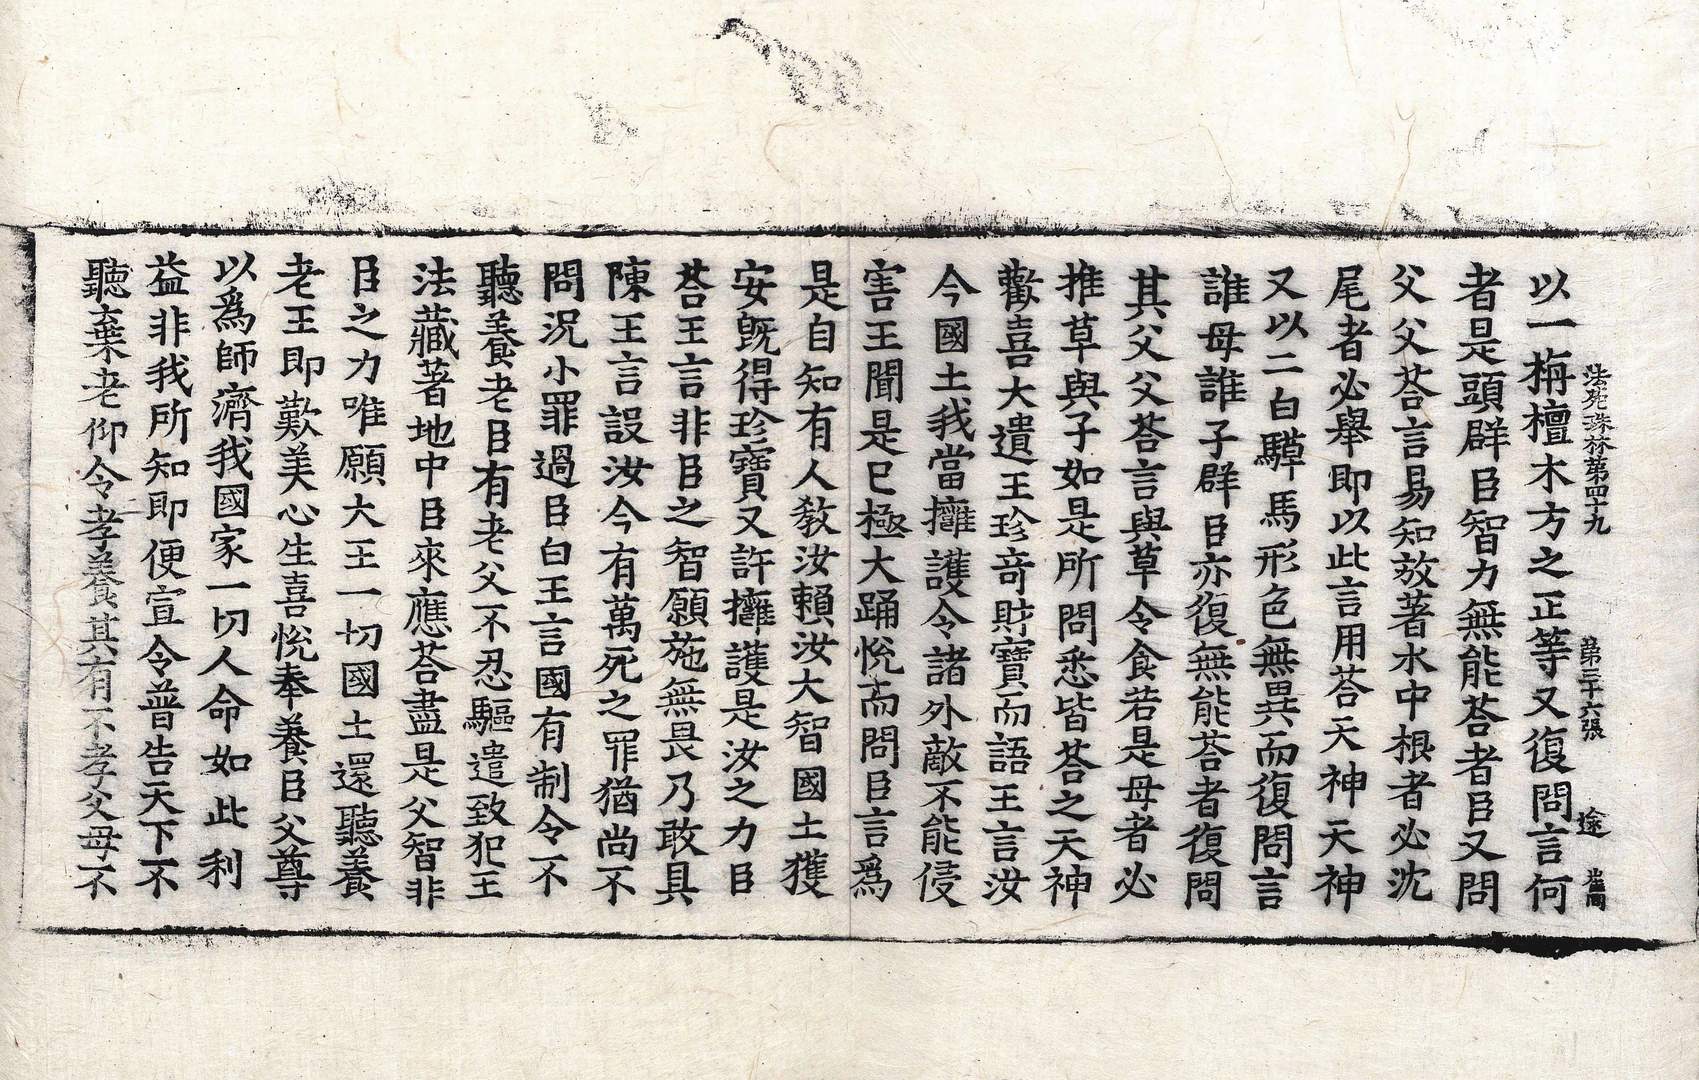 法苑珠林第四十九 第三十六張 途
以一栴檀木方之正等又復問言何
者是頭群臣智力無能荅者臣又問
父父荅言易知放著水中根者必沈
尾者必舉即以此言用荅天神天神
又以二白騲馬形色無異而復問言
誰母誰子群臣亦復無能荅者復問
其父父荅言與草令食若是母者必
推草與子如是所問悉皆荅之天神
歡喜大遺王珍竒財寶而語王言汝
今國土我當擁護令諸外敵不能侵
害王聞是已極大踊悅而問臣言爲
是自知有人敎汝賴汝大智國土獲
安旣得珍寶又許擁護是汝之力臣
荅王言非臣之智願施無畏乃敢具
陳王言設汝今有萬死之罪猶尚不
問況小罪過臣白王言國有制令不
聽養老臣有老父不忍驅遣致犯王
法藏著地中臣來應荅盡是父智非
臣之力唯願大王一切國土還聽養
老王即歎美心生喜悅奉養臣父尊
以爲師濟我國家一切人命如此利
益非我所知即便宣令普告天下不
聽棄老仰令孝養其有不孝父母不